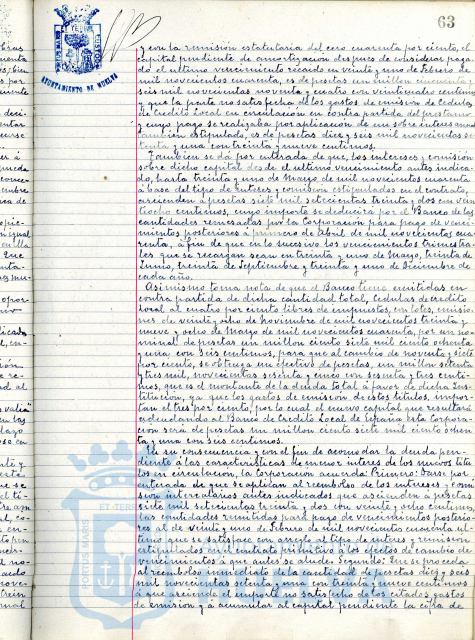 63
AYUNTAMIENTO DE HUELVA
y con la remisión estatutaria del cero cuarenta por ciento, el
capital pendiente de amortización despues de considerar paga-
do el ultimo vencimiento recaido en veinte y uno de febrero de
mil novecientos cuarenta, es de pesetas un millon cuarenta y
seis mil novecientos noventa y cuatro con veinticuatro centimos
y que la parte no satisfecha de los gastos de emision de Cedulas
de Credito Local en circulacion en contrapartida del prestamo
y cuyo pago se realizaba por aplicacion de un sobre interes anual
tambien estipulado, es de pesetas diez y seis mil novecientas se-
tenta y una con treinta y nueve centimos.
Tambien se dá por enterada de que, los intereses y comision
sobre dicho capital desde el ultimo vencimiento antes indica-
do, hasta treinta y uno de Mayo de mil novecientos cuarenta
á base del tipo de interes y comision estipulados en el contrato,
ascienden á pesetas siete mil setecientas treinta y dos con vein-
tiocho centimos, cuyo importe se deducirá por el Banco de las
cantidades remesadas por la Corporación para pago de venci-
mientos posteriores á primero de Abril de mil novecientos cua-
renta, á fin de que en lo sucesivo los vencimientos trimestra-
les que se recarguen sean en treinta y uno de Mayo, treinta de
Junio, treinta de Septiembre y treinta y uno de Diciembre de
cada año.
Asimismo toma nota de que el Banco tiene emitidas en
contra partida de dicha cantidad total, Cedulas de Credito
Local al cuatro por ciento libres de impuestos, con lotes, emisio-
nes de veinte y ocho de Noviembre de mil novecientos treinta y
nueve y ocho de Marzo de mil novecientos cuarenta, por un no-
minal de pesetas un millon ciento siete mil ciento ochenta
y una con seis centimos, para que al cambio de noventa y siete
por ciento, se obtenga un efectivo de pesetas, un millon setenta
y tres mil, novecientas sesenta y cinco con sesenta y tres centi-
mos, que es el montante de la deuda total á favor de dicha Ins-
titución, ya que los gastos de emisión de estos titulos, impor-
tan el tres por ciento, por lo cual el nuevo capital que resultará
adeudando al Banco de Credito Local de España esta Corpora-
cion será de pesetas un millon ciento siete mil ciento ochen-
ta y una con seis centimos.
En su consecuencia y con el fin de acomodar la deuda pen-
diente á las caracteristicas de menor interes de los nuevos titu-
los en circulacion, la Corporacion acuerda: Primero: Darse por
enterada de que se aplican al reembolso de los intereses y comi-
sion intercalarios antes indicados que ascienden á pesetas
siete mil setecientas treinta y dos con veinte y ocho centimos,
las cantidades remitidas para pago de vencimientos posterio-
res al de veinte y uno de febrero de mil novecientos cuarenta ul-
timo que se satisface con arreglo al tipo de interes y remision
estipulados en el contrato primitivo á los efectos de cambio de
vencimientos á que antes se alude. Segundo: Que se proceda
al reembolso inmediato de la cantidad de pesetas diez y seis
mil novecientas setenta y una con treinta y nueve centimos
á que asciende el importe no satisfecho de los citados gastos
de emisión y a acumular al capital pendiente la cifra de